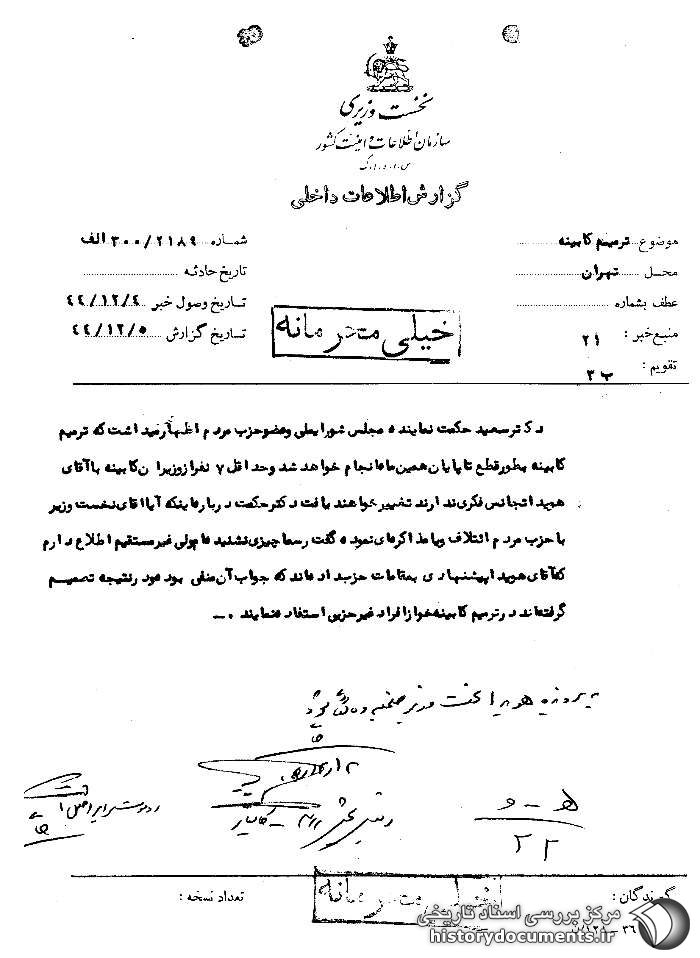 نخست وزیری
سازمان اطلاعات و امنیت کشور
س.ا.و.ا.ک
گزارش اطلاعات داخلی
موضوع ترمیم کابینه
شماره ۳۰۰/۲۱۸۹ الف
محل تهران
تاریخ حادثه
عطف بشماره
تاریخ وصول خبر ۴۴/۱۲/۴
منبع خبر : ۲۱
تاریخ گزارش ۴۴/۱۲/۵
تقویم : ب ۳
خیلی محرمانه
دکتر سعید حکمت نماینده مجلس شورایملی و عضو حزب مردم اظهار میداشت که ترمیم
کابینه بطور قطع تا پایان همین ماه انجام خواهد شد و حداقل ۷ نفر از وزیران کابینه با آقای
هویدا تجانس فکری ندارند تغییر خواهند یافت دکتر حکمت درباره اینکه آیا آقای نخست وزیر
با حزب مردم ائتلاف و یا مذاکره‌ای نموده گفت رسما چیزی نشنیده‌ام ولی غیر مستقیم اطلاع دارم
که آقای هویدا پیشنهادی بمقامات حزب داده‌اند که جواب آن منفی بوده و در نتیجه تصمیم
گرفته‌اند در ترمیم کابینه خود از افراد غیر حزبی استفاده نمایند .ـ
به پرونده هویدا نخست وزیر ضمیمه و شود
ه - و
۲۲
خیلی محرمانه
گیرندگان :
تعداد نسخه :
۳۶ -
مرکز بررسی اسناد تاریخی
historydocuments.ir